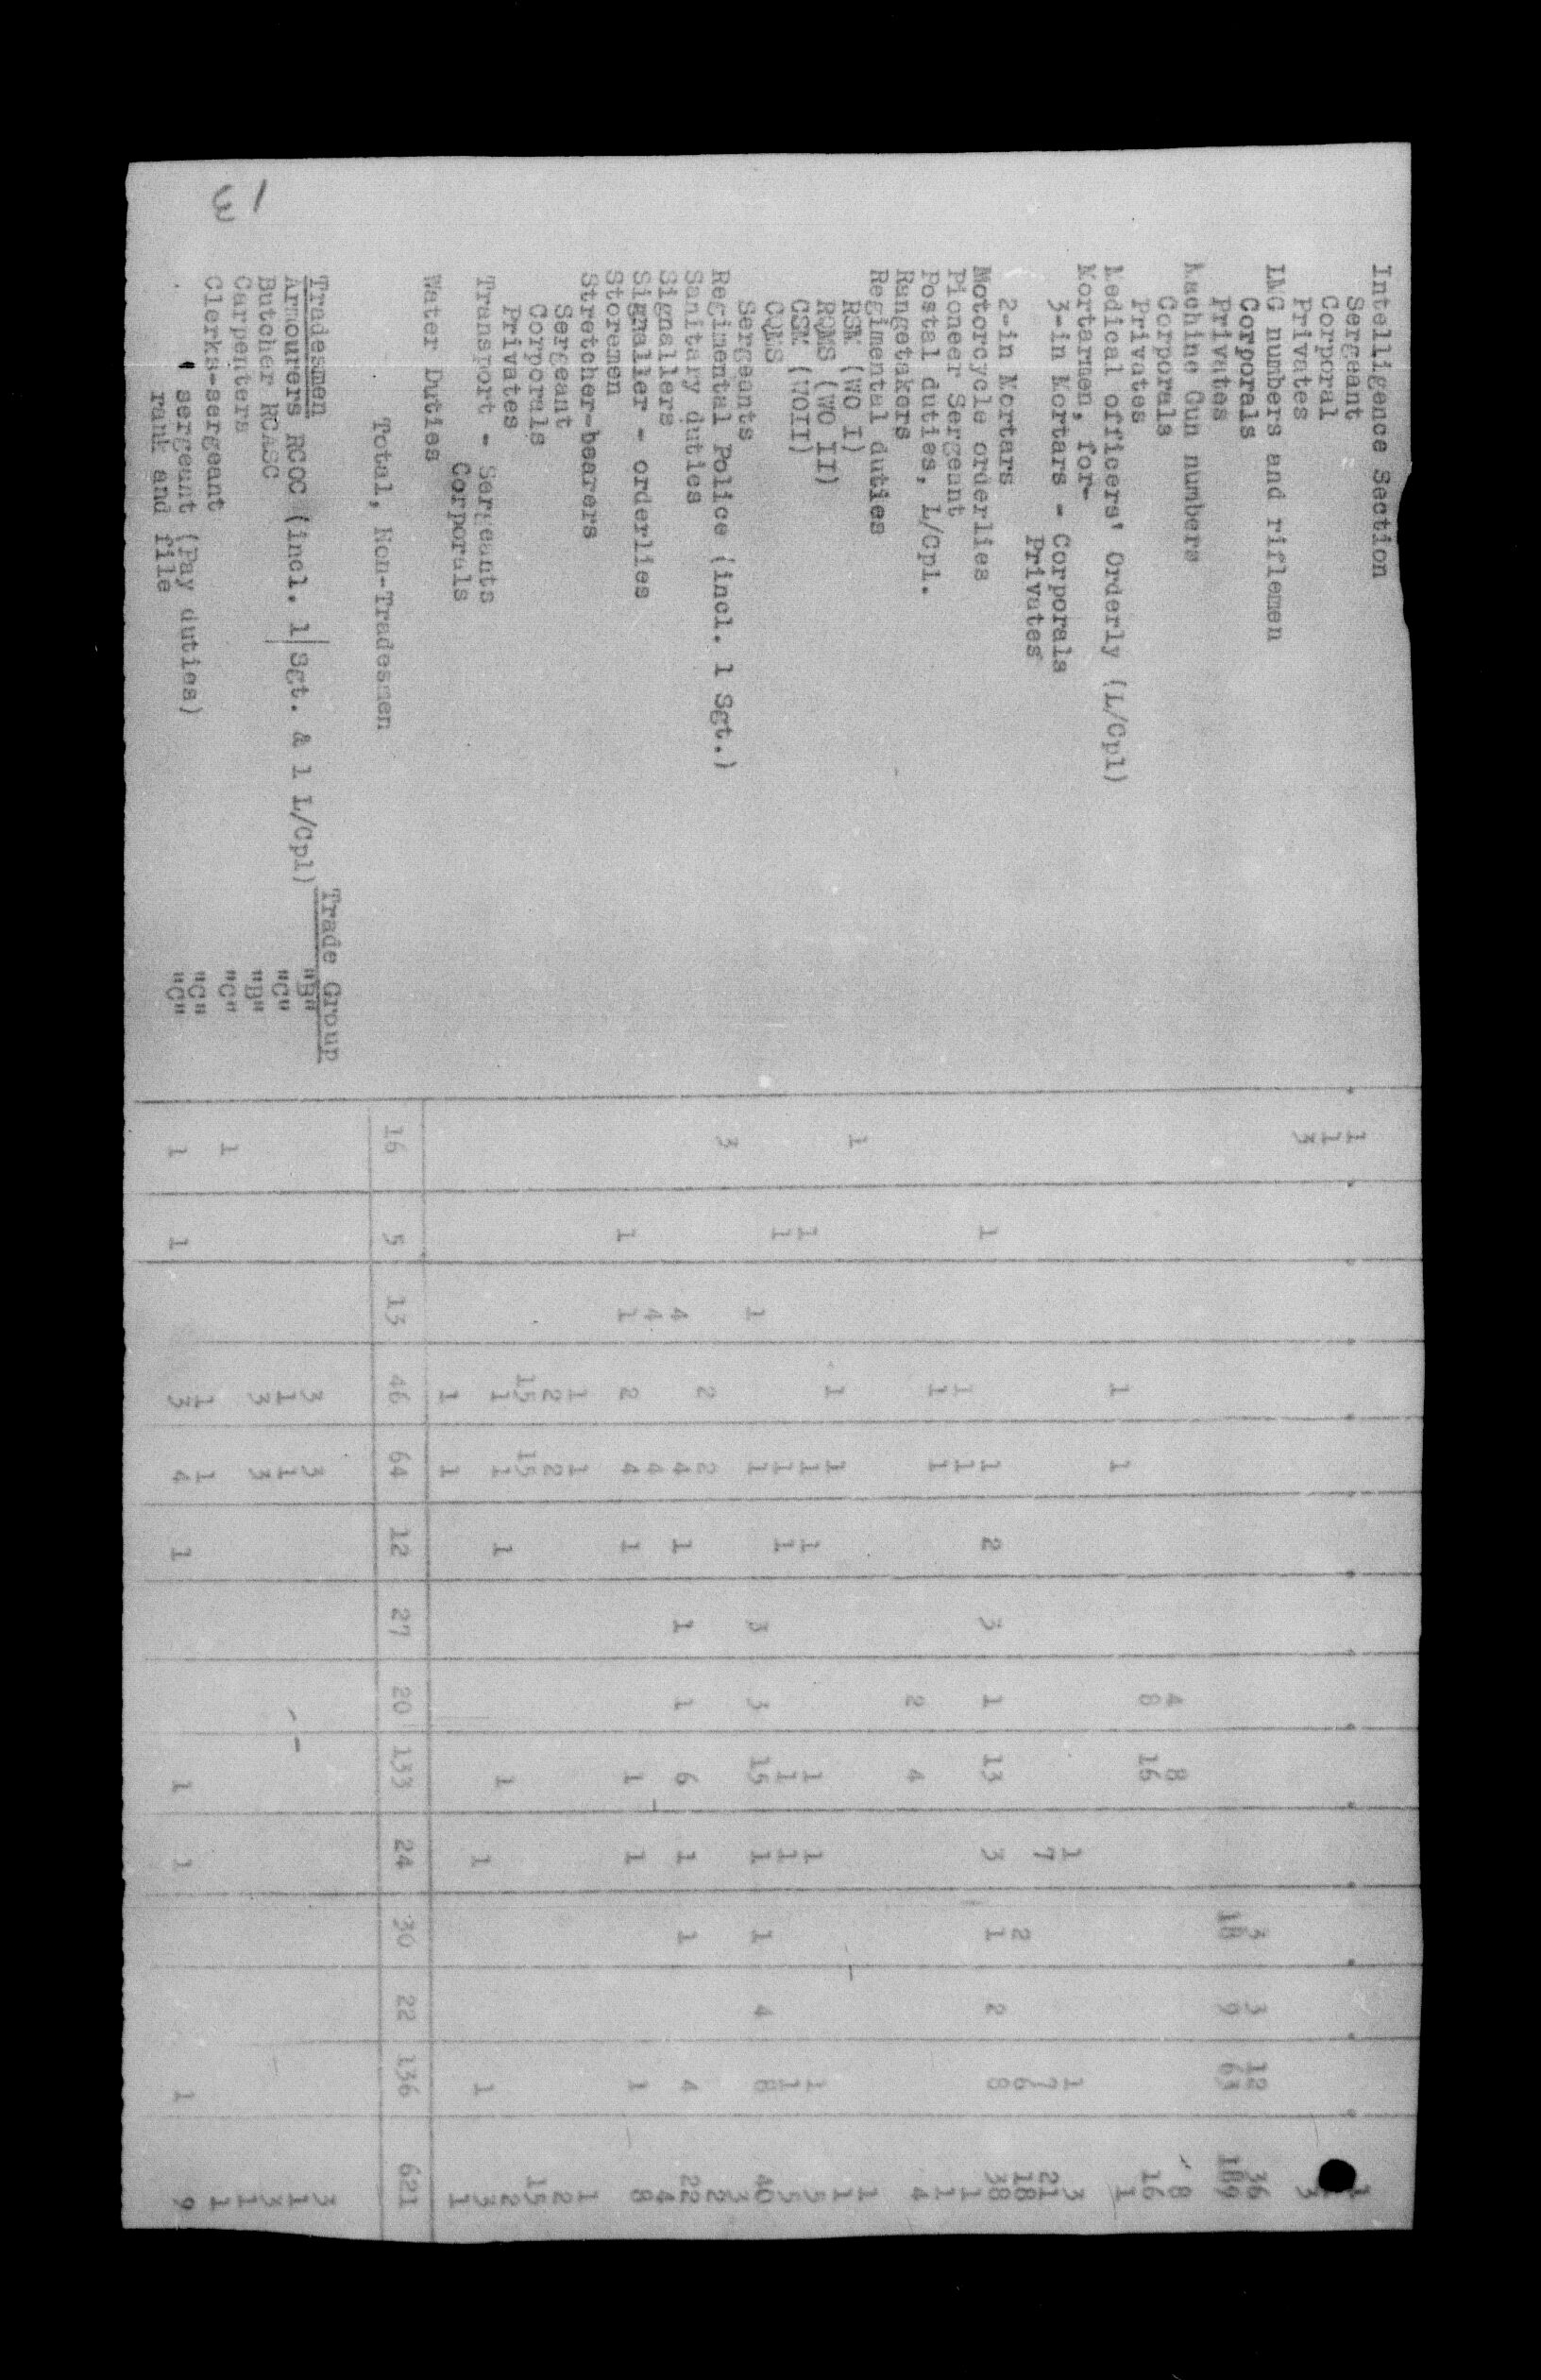 Intelligence Section
Sergeant 1 1
Corporal 1
Privates 3 3
LMG numbers and riflemen
Corporals 3 3 12 36
Privates 18 9 63 189
Machine Gun numbers
Corporals 4 8 8
Privates 8 16 16
Medical officers' Orderly (L/Cpl) 1 1 1
Mortarmen, for-
3-in Mortars - Corporals 1 1 3
Privates 7 7 21
2-in Mortars 2 6 18
Motorcycle orderlies 1 1 2 3 1 13 3 1 2 8 38
Pioneer Sergeant 1 1 1
Postal duties, L/Cpl. 1 1 1
Rangetakers 2 4 4
Regimental duties
RSM (WO I) 1 1
RQMS (WO II) 1 1 1
CSM (WOII) 1 1 1 1 1 1 5
CQMS 1 1 1 1 1 1 5
Sergeants 1 1 3 3 15 1 1 4 8 40
Regimental Police (incl. 1 Sgt.) 3 3
Sanitary duties 2 2 2
Signallers 4 4 1 1 1 6 1 1 4 22
Signaller - orderlies 4 4 4
Storemen 1 1 2 4 1 1 1 1 8
Stretcher-bearers
Sergeant 1 1 1
Corporals 2 2 2
Privates 15 15 15
Transport - Sergeants 1 1 1 1 2
Corporals 1 1 3
Water Duties 1 1 1
Total, Non-Tradesmen 16 5 13 46 64 12 27 20 133 24 30 22 136 621
Tradesmen Trade Group
Armourers RCOC (incl. 1 Sgt. & 1 L/Cpl) "B" 3 3 3
Butcher RCASC "C" 1 1 1
Carpenters "B" 3 3 3
Clerks-sergeant "C" 1 1
" sergeant (Pay duties) "C" 1 1 1
rank and file "C" 1 1 3 4 1 1 1 1 9